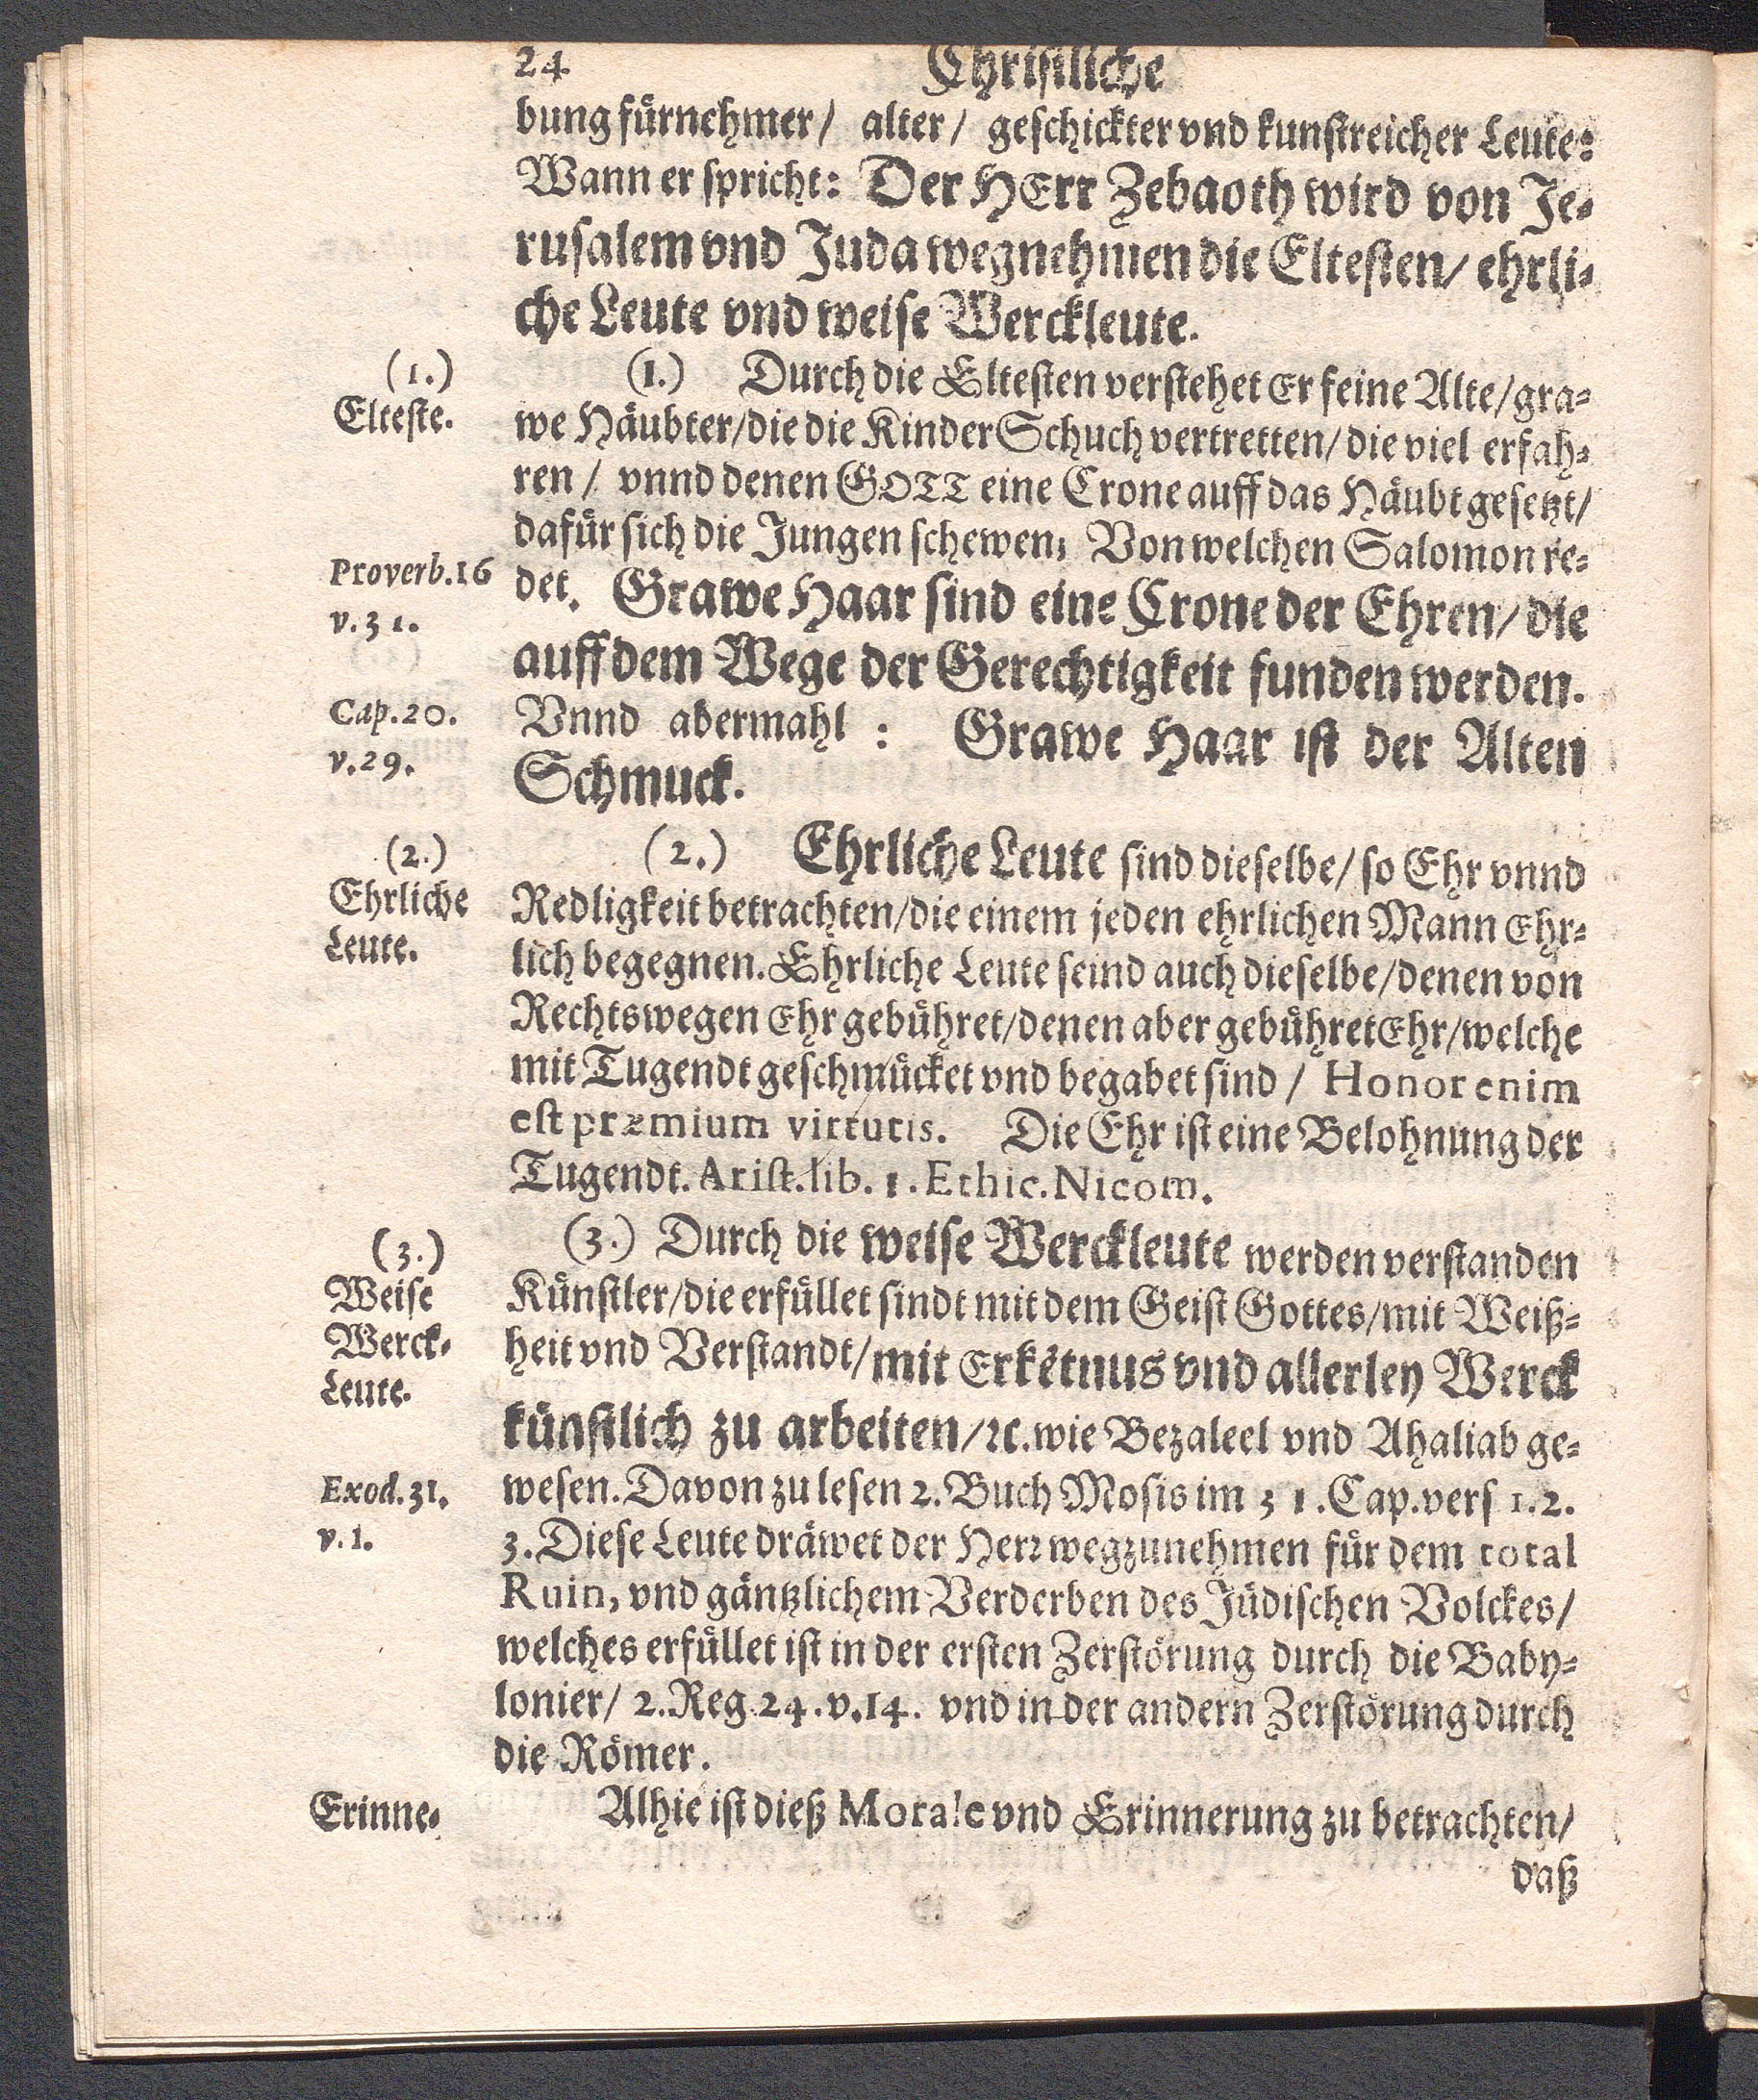 24
Christliche
bung fürnehmer/ alter/ geschickter vnd kunstreicher Leute:
Wann er spricht: Der HErr Zebaoth wird von Je-
rusalem vnd Juda wegnehmen die Eltesten/ ehrli-
che Leute vnd weise Werckleute.
(1.)
Elteste.
(1.) Durch die Eltesten verstehet Er feine Alte/ gra-
we Häubter/ die die Kinder Schuch vertretten/ die viel erfah-
ren/ vnnd denen GOTT eine Crone auff das Häubt gesetzt/
dafür sich die Jungen schewen; Von welchen Salomon re-
Proverb. 16
v. 31.
det. Grawe Haar sind eine Crone der Ehren/ die
auff dem Wege der Gerechtigkeit funden werden.
Cap. 20.
v. 29.
Vnnd abermahl: Grawe Haar ist der Alten
Schmuck.
(2.)
Ehrliche
Leute.
(2.) Ehrliche Leute sind dieselbe/ so Ehr vnnd
Redligkeit betrachten/ die einem jeden ehrlichen Mann Ehr-
lich begegnen. Ehrliche Leute seind auch dieselbe/ denen von
Rechtswegen Ehr gebühret/ denen aber gebühret Ehr/ welche
mit Tugendt geschmücket vnd begabet sind/ Honor enim
est præmium virtutis. Die Ehr ist eine Belohnung der
Tugendt. Arist. lib. 1. Ethic. Nicom.
(3.)
Weise
Werck-
Leute.
(3.) Durch die weise Werckleute werden verstanden
Künstler/ die erfüllet sindt mit dem Geist Gottes/ mit Weiß-
heit vnd Verstandt/ mit Erkẽtnus vnd allerley Werck
künstlich zu arbeiten/ ꝛc. wie Bezaleel vnd Ahaliab ge-
Exod. 31.
v. 1.
wesen. Davon zu lesen 2. Buch Mosis im 31. Cap. vers 1. 2.
3. Diese Leute dräwet der Herr wegzunehmen für dem total
Ruin, vnd gäntzlichem Verderben des Jüdischen Volckes/
welches erfüllet ist in der ersten Zerstörung durch die Baby-
lonier/ 2. Reg. 24. v. 14. vnd in der andern Zerstörung durch
die Römer.
Erinne-
Alhie ist dieß Morale vnd Erinnerung zu betrachten/
daß